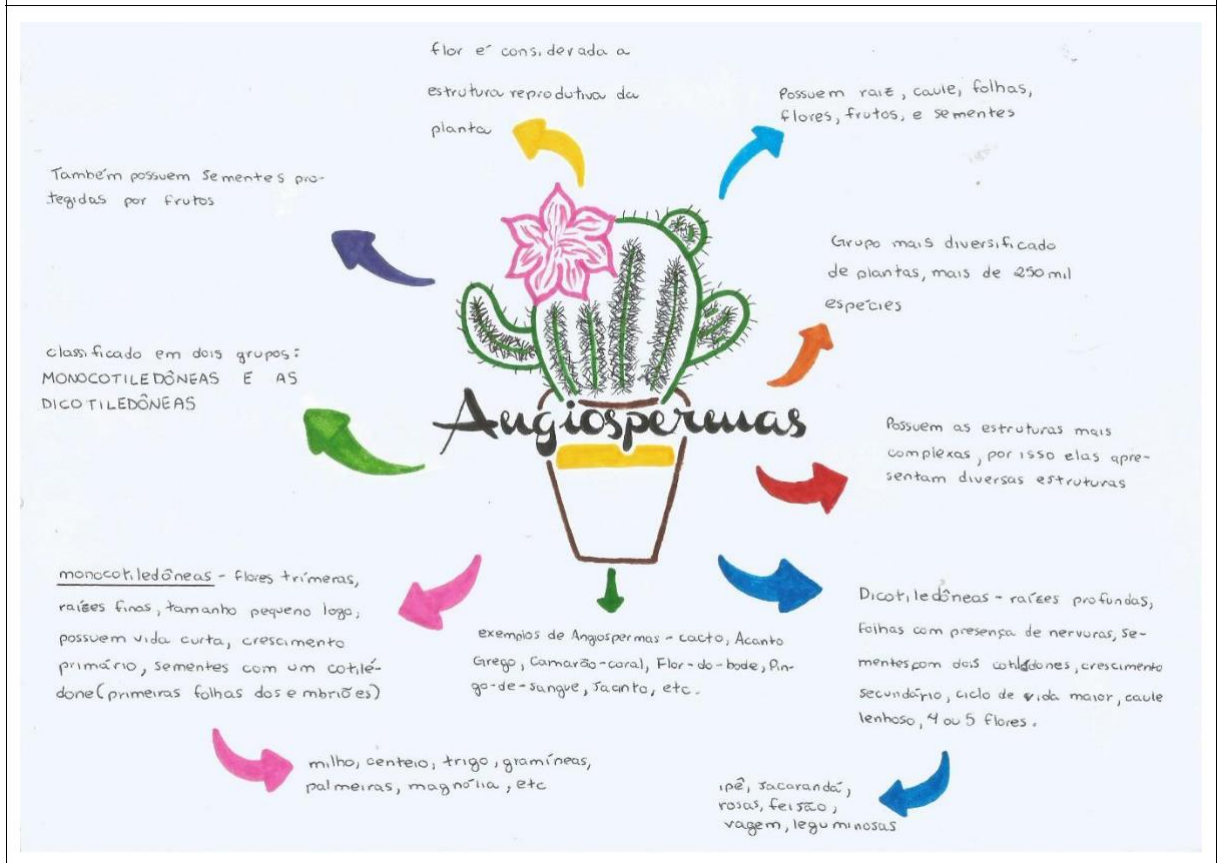 flor é considerada a
estrutura reprodutiva da
planta
Possuem raiz, caule, folhas,
flores, frutos, e sementes
Também possuem sementes pro-
tegidas por frutos
Grupo mais diversificado
de plantas, mais de 250 mil
espécies
classificado em dois grupos:
MONOCOTILEDÔNEAS E AS
DICOTILEDÔNEAS
Angiospermas
Possuem as estruturas mais
complexas, por isso elas apre-
sentam diversas estruturas
monocotiledôneas - flores trímeras,
raízes finas, tamanho pequeno logo,
possuem vida curta, crescimento
primário, sementes com um cotilé-
done (primeiras folhas dos embriões)
exemplos de Angiospermas - cacto, Acanto
Grego, Camarão-coral, Flor-do-bode, Pin-
go-de-sangue, Jacinto, etc.
Dicotiledôneas - raízes profundas,
folhas com presença de nervuras, se-
mentes com dois cotilédones, crescimento
secundário, ciclo de vida maior, caule
lenhoso, 4 ou 5 flores.
milho, centeio, trigo, gramíneas,
palmeiras, magnólia, etc
ipê, Jacarandá,
rosas, feijão,
vagem, leguminosas